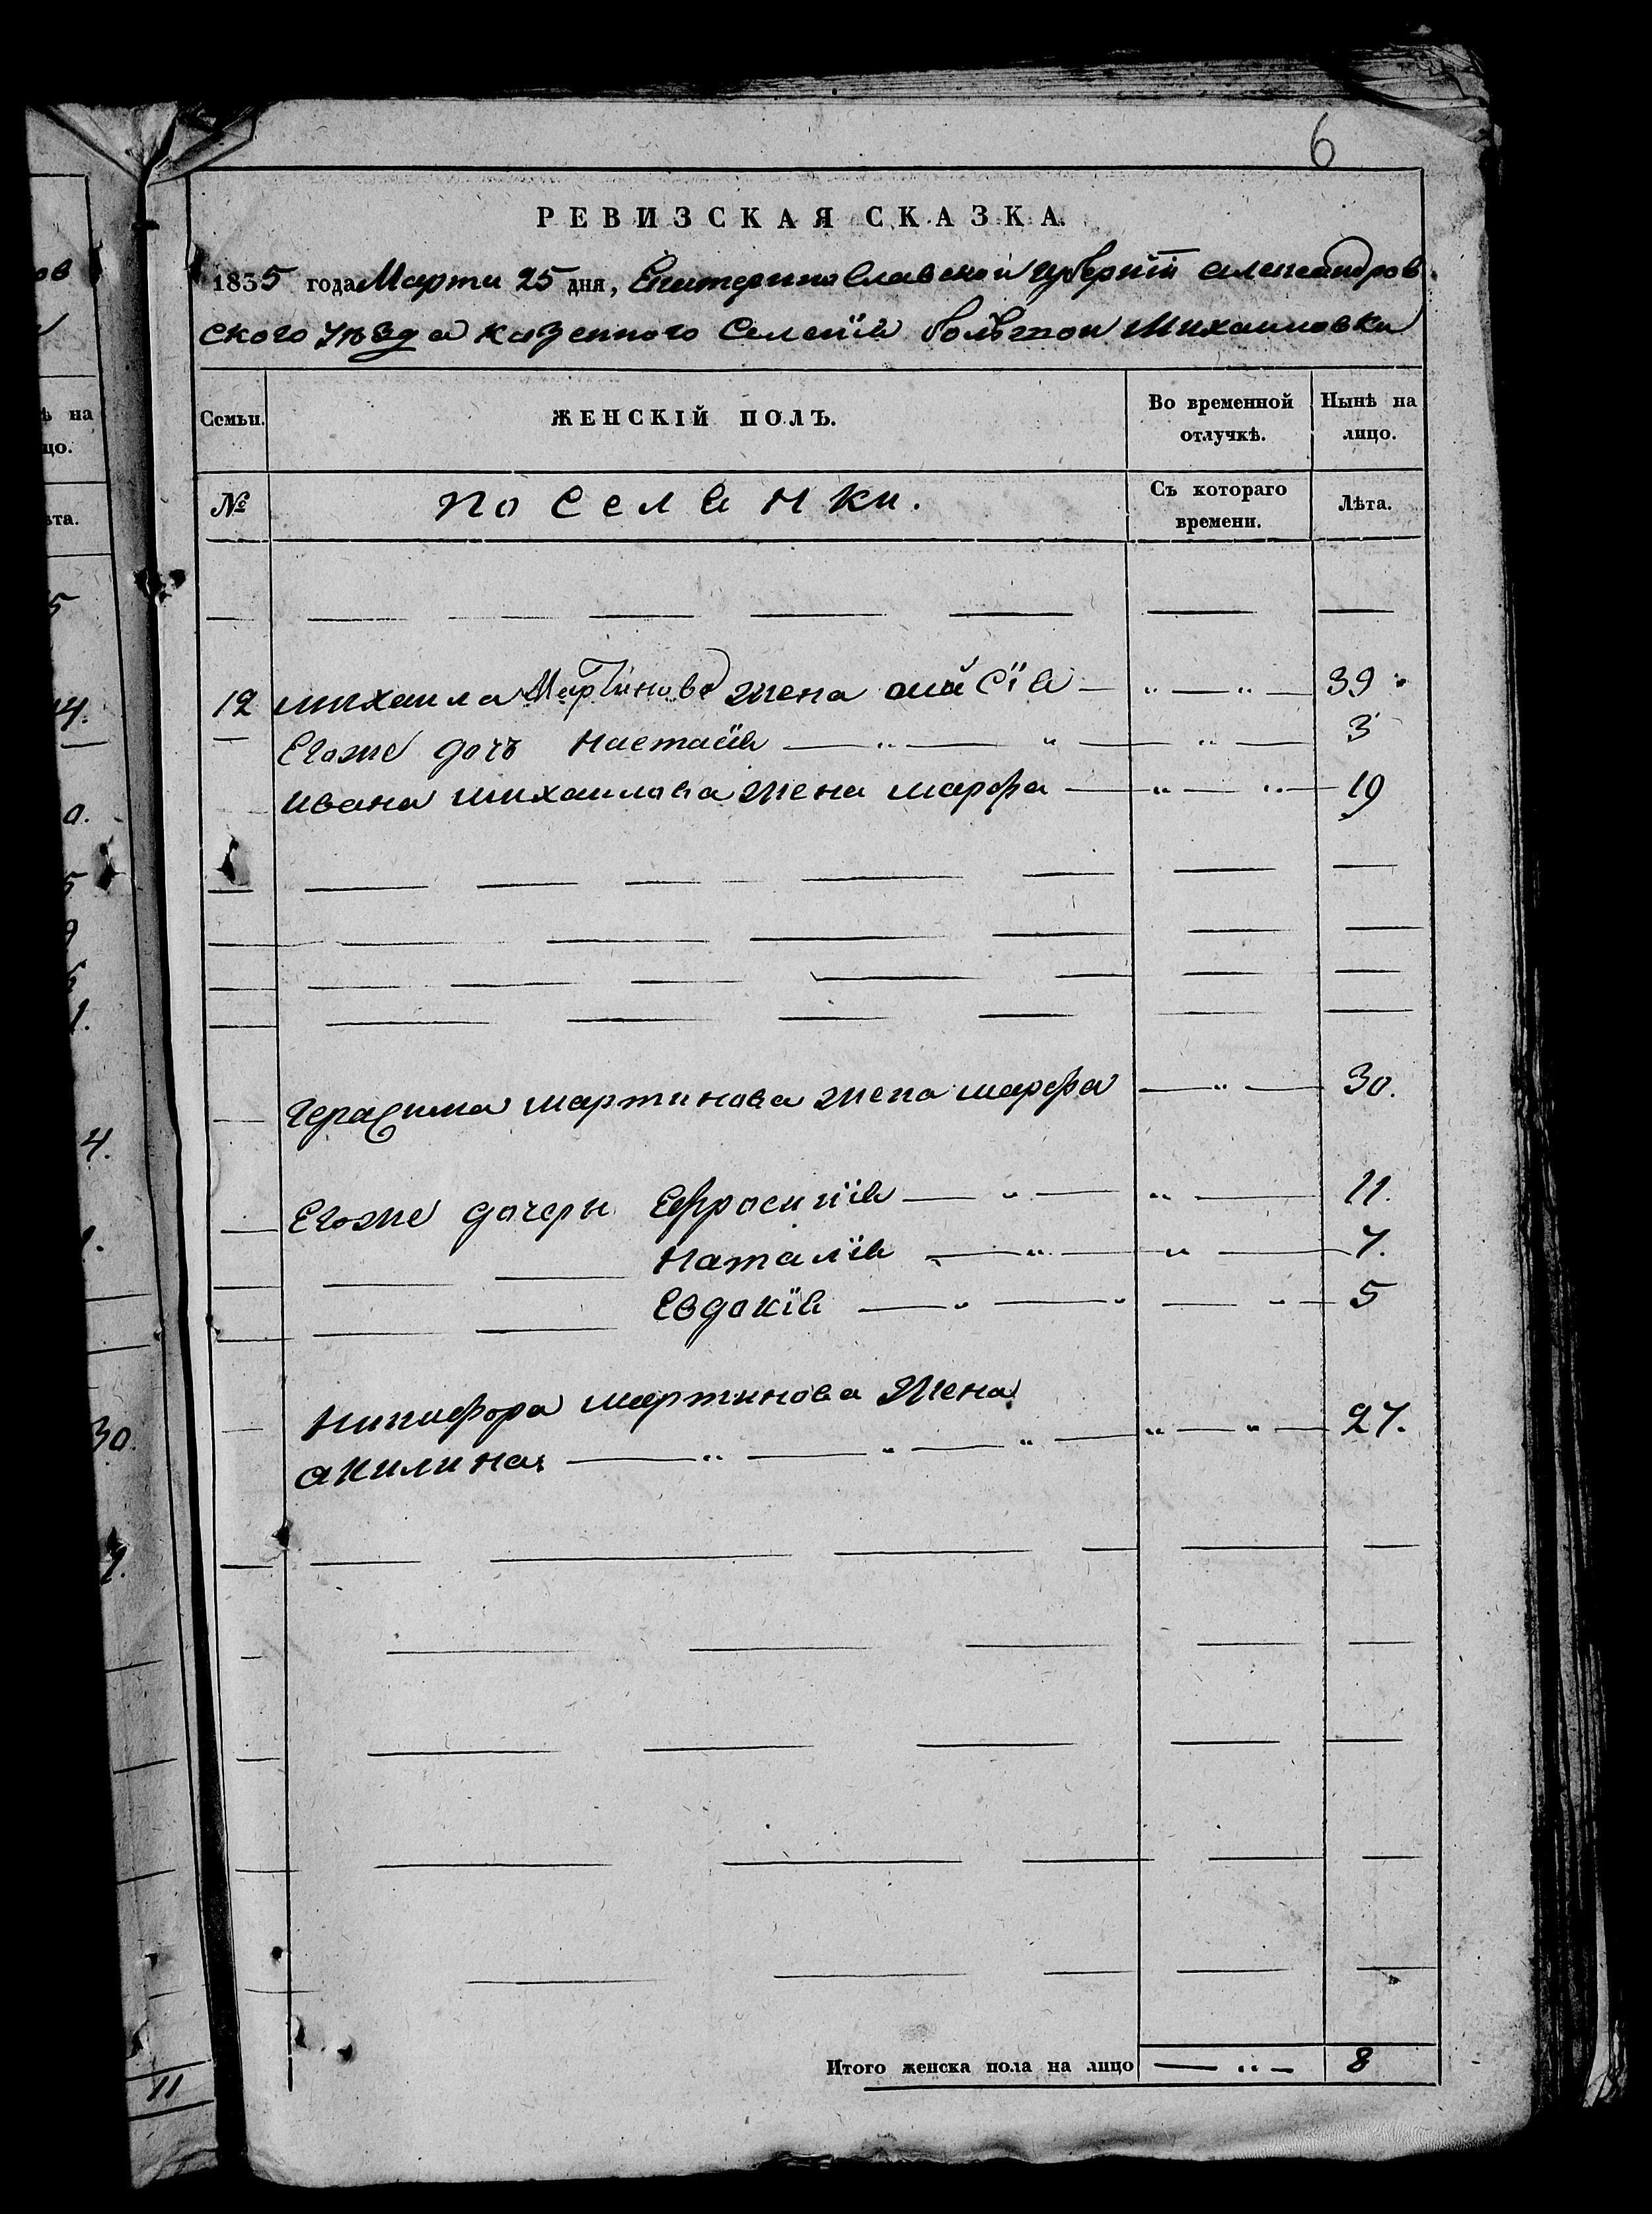 6
РЕВИЗСКАЯ СКАЗКА.
1835 года Марта 25 дня, Екатеринославской губернїи александров
ского уѣзда казенного Селенїя большой Михаиловки
Семьи. ЖЕНСКІЙ ПОЛЪ. Во временной отлучкѣ. Нынѣ на лицо.
№ поселянки. Съ котораго времени. Лѣта.
12 михаила Мартинова жена 39
Егоже дочь настасїя 3
ивана михаилова жена марфа 19
герасима мартинова жена марфа 30.
Егоже дочери Ефросинїя 11.
наталїя 7.
Евдокїя 5
никифора мартинова жена
акилина 27.
Итого женска пола на лицо 8
ов
ѣ на
цо.
ѣта.
5
14.
0.
5
4.
30.
11